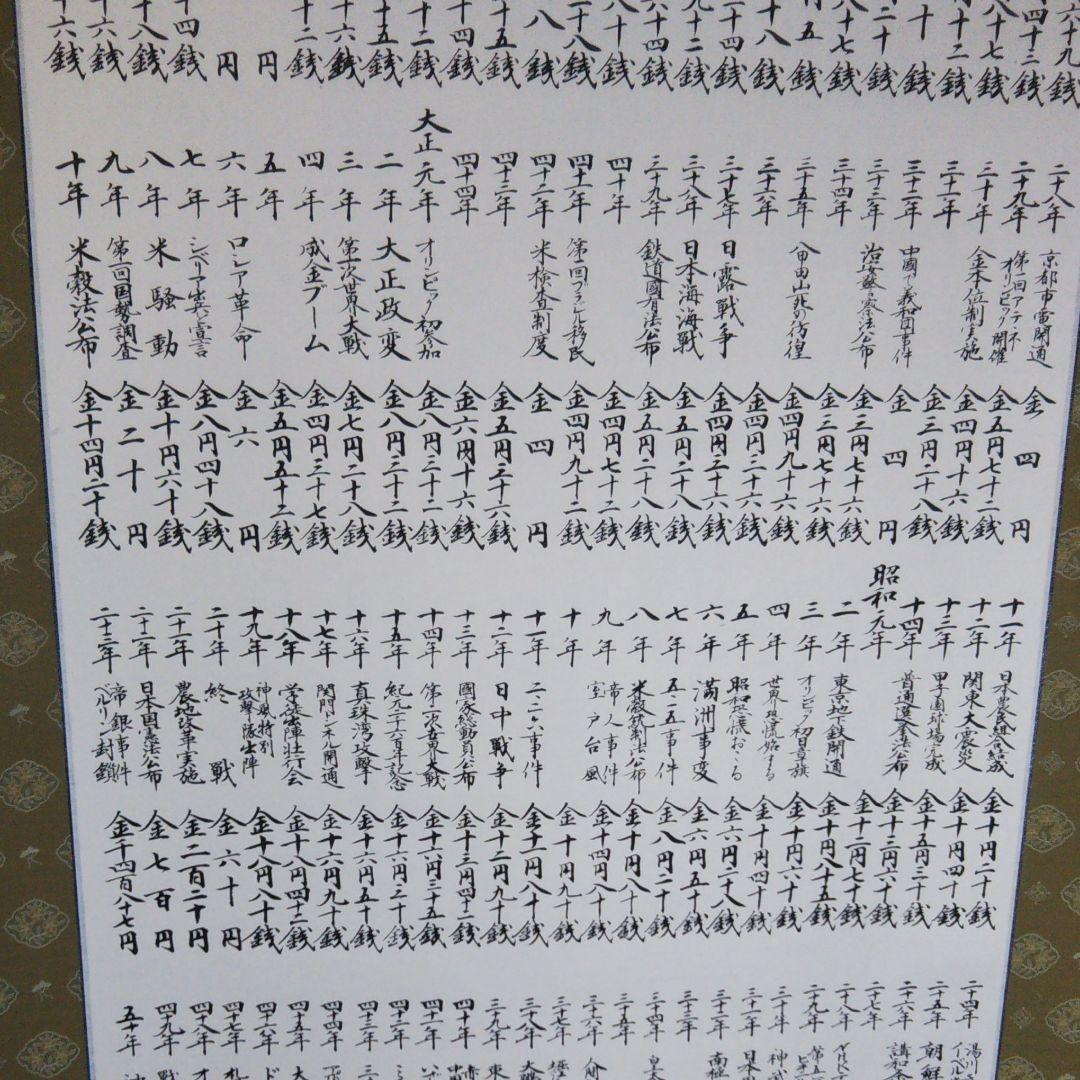 六十九銭
四十三銭
八十七銭
十二銭
十銭
二十銭
八十七銭
五銭
十八銭
十四銭
九十二銭
六十四銭
八十銭
二十八銭
八銭
十五銭
十四銭
十二銭
十五銭
十六銭
十二銭
円
円
十四銭
十八銭
十六銭
十六銭
二十八年 京都市電開通 金四円
二十九年 第一回アテネオリンピック開催 金五円七十二銭
三十年 金本位制実施 金四円十六銭
三十一年 金三円二十八銭
三十二年 中國で義和団事件 金四円
三十三年 治安警察法公布 金三円七十六銭
三十四年 金三円七十六銭
三十五年 八甲田山死の彷徨 金四円九十六銭
三十六年 金四円三十六銭
三十七年 日露戦争 金四円三十六銭
三十八年 日本海海戦 金五円二十八銭
三十九年 鉄道國有法公布 金五円二十八銭
四十年 金四円七十二銭
四十一年 第一回ブラジル移民 金四円九十二銭
四十二年 米検査制度 金四円
四十三年 金五円三十六銭
四十四年 金六円十六銭
大正元年 オリンピック初参加 金八円三十二銭
二年 大正政変 金八円三十二銭
三年 第一次世界大戦 金七円二十八銭
四年 成金ブーム 金四円三十七銭
五年 金五円五十二銭
六年 ロシア革命 金六円
七年 シベリア出兵宣言 金八円四十八銭
八年 米騒動 金十円六十銭
九年 第一回国勢調査 金二十円
十年 米穀法公布 金十四円二十銭
十一年 日本農民組合結成 金十円二十銭
十二年 関東大震災 金十円四十銭
十三年 甲子園球場完成 金十五円三十銭
十四年 普通選挙法公布 金十三円六十銭
昭和元年 金十二円七十銭
二年 東京地下鉄開通 金十円八十五銭
三年 オリンピック初日章旗 金十円六十銭
四年 世界恐慌始まる 金十円四十銭
五年 昭和恐慌おこる 金六円二十八銭
六年 満洲事変 金六円五十銭
七年 五・一五事件 金八円二十銭
八年 米穀統制法公布 金十円八十銭
九年 帝人事件室戸台風 金十四円八十銭
十年 金十円九十銭
十一年 二・二六事件 金十一円八十銭
十二年 日中戦争 金十二円九十銭
十三年 國家総動員公布 金十三円四十二銭
十四年 第二次世界大戦 金十六円三十五銭
十五年 紀元二千六百年記念 金十六円三十銭
十六年 真珠湾攻撃 金十六円五十銭
十七年 関門トンネル開通 金十六円九十銭
十八年 学徒出陣壮行会 金十八円四十二銭
十九年 神風特別攻撃隊出陣 金十八円八十銭
二十年 終戦 金六十円
二十一年 農地改革実施 金二百二十円
二十二年 日本国憲法公布 金七百円
二十三年 帝銀事件ベルリン封鎖 金千四百八十七円
二十四年 湯川
二十五年 朝鮮
二十六年 講和
二十七年
二十八年
二十九年
三十年 神武
三十一年 日本
三十二年 南極
三十三年
三十四年 皇太
三十五年
三十六年
三十七年
三十八年
三十九年 東
四十年
四十一年
四十二年
四十三年
四十四年
四十五年 大
四十六年 ド
四十七年 札
四十八年 オ
四十九年 戦
五十年 沖